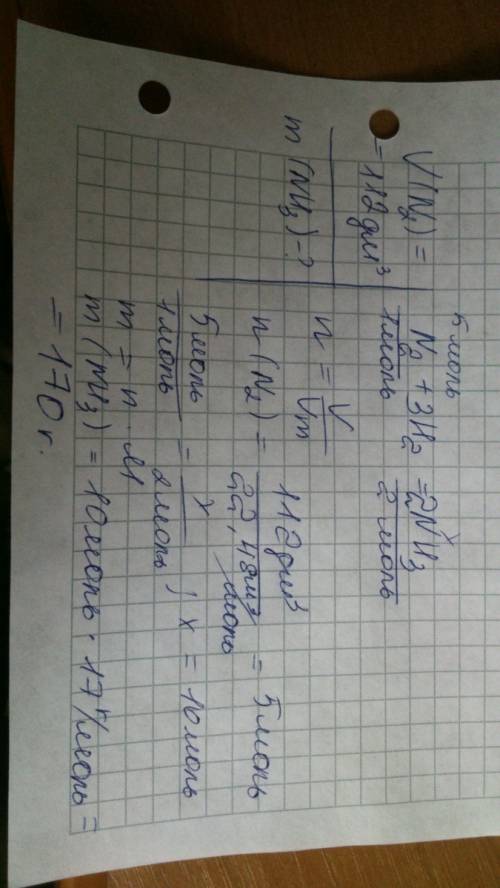 V(N₂) =
= 112 дм³
m(NH₃) - ?
5 моль x
N₂ + 3H₂ = 2NH₃
1 моль 2 моль
n = V/Vm
n(N₂) = 112 дм³ / 22,4 дм³/моль = 5 моль
5 моль / 1 моль = x / 2 моль ; x = 10 моль
m = n · M
m(NH₃) = 10 моль · 17 г/моль =
= 170 г.